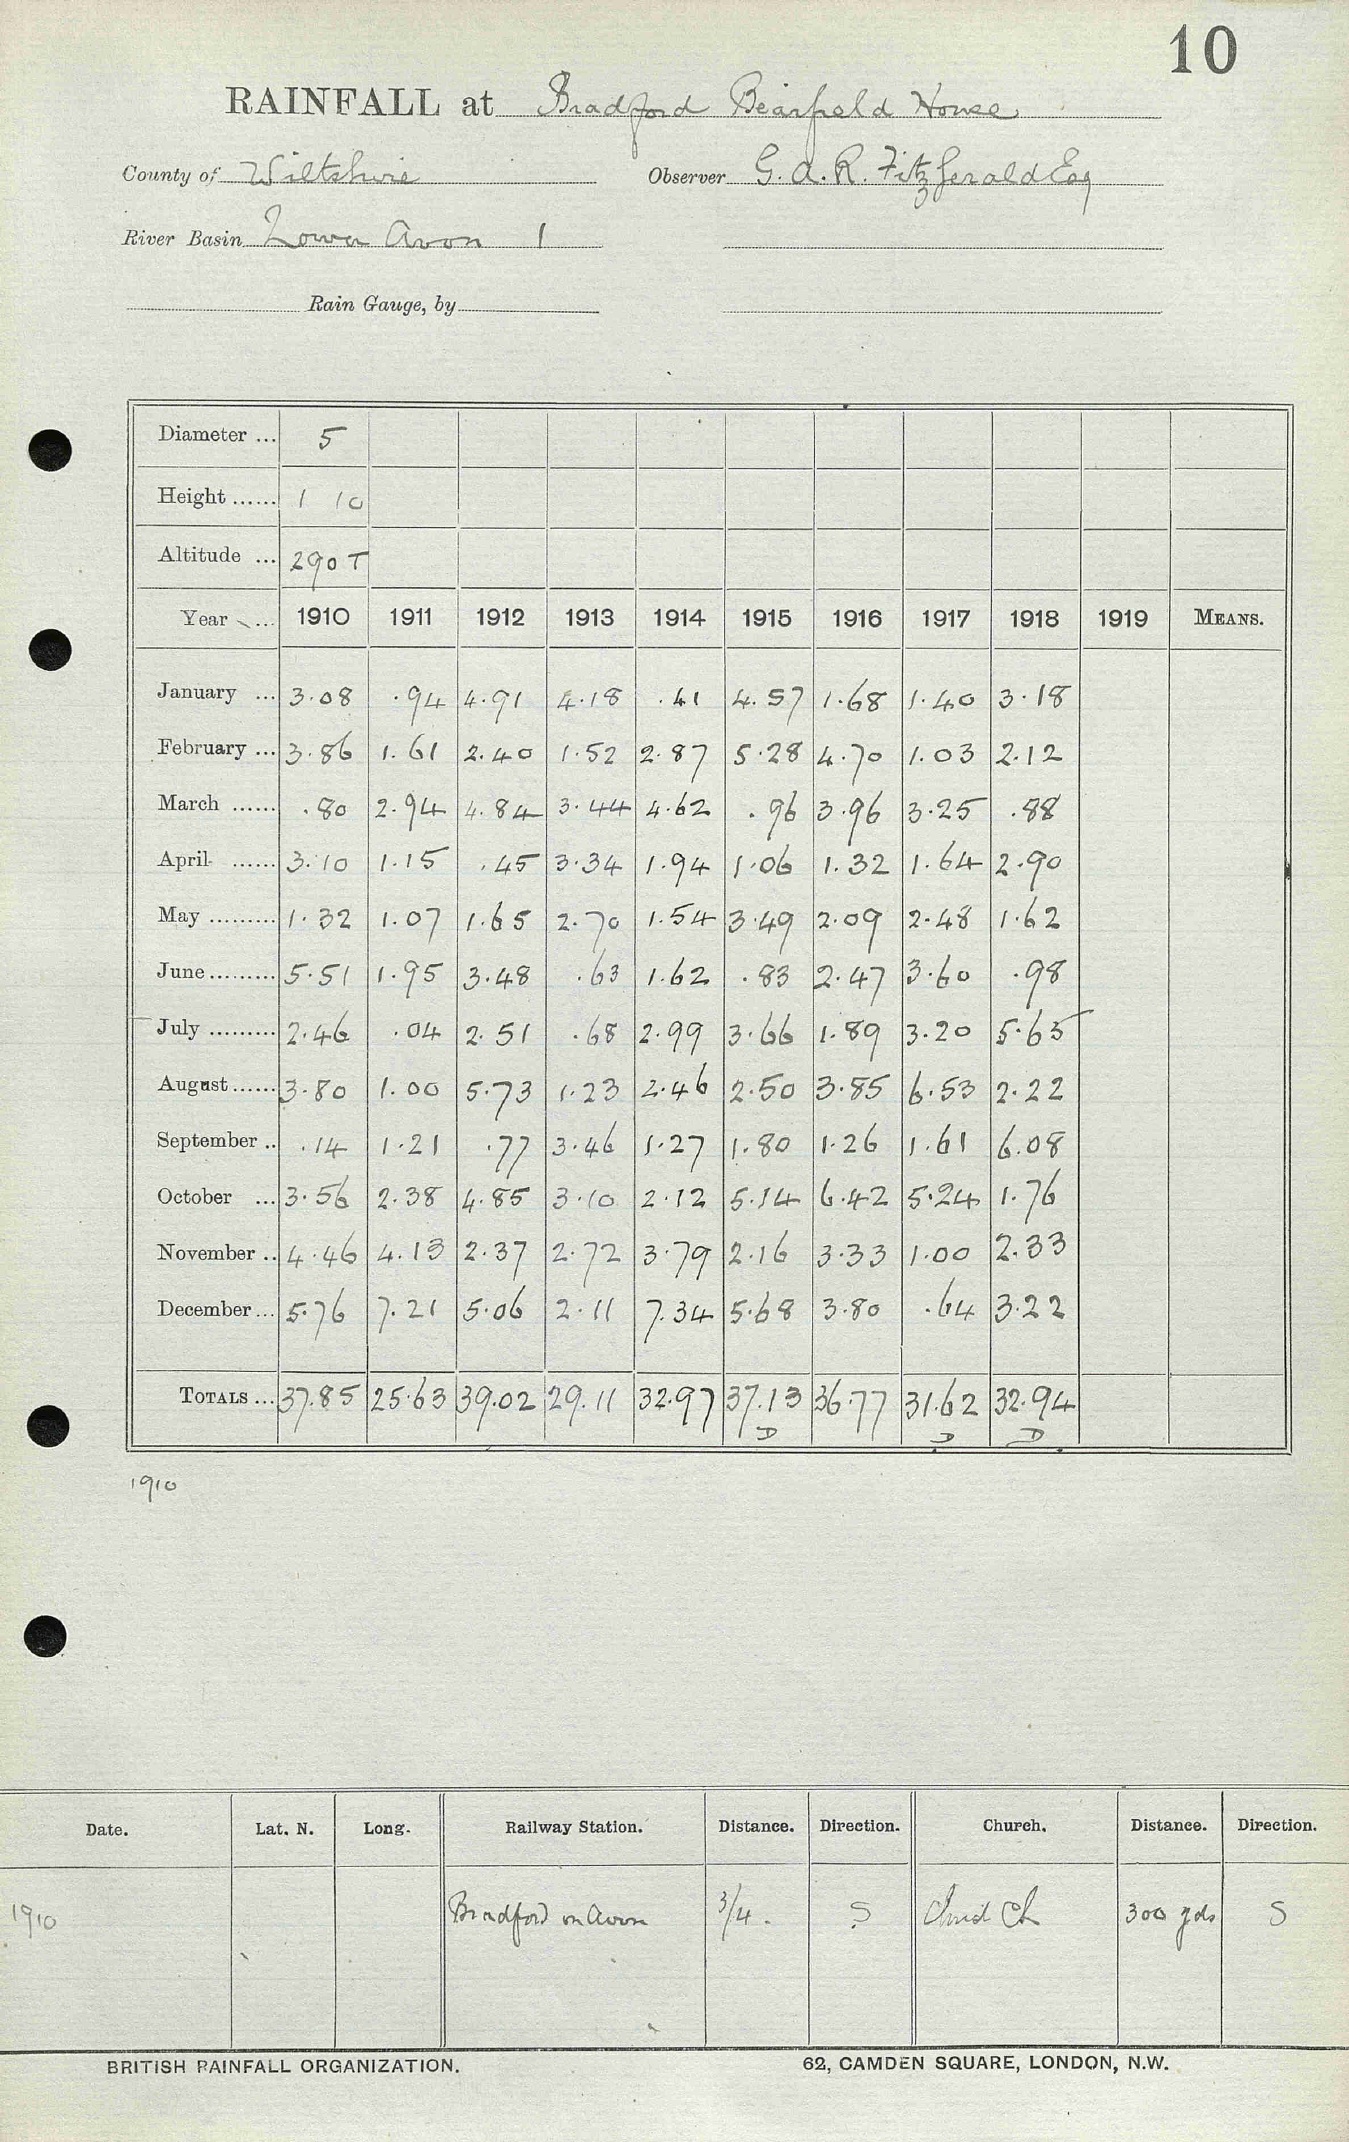 10
RAINFALL at Bradford Bearfield House
County of Wiltshire Observer G. A. R. FitzGerald Esq
River Basin Lower Avon 1
Rain Gauge, by
Diameter ... 5
Height ...... 1 10
Altitude ... 290 T
Year ... 1910 1911 1912 1913 1914 1915 1916 1917 1918 1919 MEANS.
January ... 3.08 .94 4.91 4.18 .41 4.57 1.68 1.40 3.18
February ... 3.86 1.61 2.40 1.52 2.87 5.28 4.70 1.03 2.12
March ...... .80 2.94 4.84 3.44 4.62 .96 3.96 3.25 .88
April ...... 3.10 1.15 .45 3.34 1.94 1.06 1.32 1.64 2.90
May ......... 1.32 1.07 1.65 2.70 1.54 3.49 2.09 2.48 1.62
June ......... 5.51 1.95 3.48 .63 1.62 .83 2.47 3.60 .98
July ......... 2.46 .04 2.51 .68 2.99 3.66 1.89 3.20 5.65
August ...... 3.80 1.00 5.73 1.23 2.46 2.50 3.85 6.53 2.22
September .. .14 1.21 .77 3.46 1.27 1.80 1.26 1.61 6.08
October ... 3.56 2.38 4.85 3.10 2.12 5.14 6.42 5.24 1.76
November .. 4.46 4.13 2.37 2.72 3.79 2.16 3.33 1.00 2.33
December ... 5.76 7.21 5.06 2.11 7.34 5.68 3.80 .64 3.22
TOTALS ... 37.85 25.63 39.02 29.11 32.97 37.13 36.77 31.62 32.94
D D D
1910
Date. Lat. N. Long. Railway Station. Distance. Direction. Church. Distance. Direction.
1910 Bradford on Avon 3/4. S Ch 300 yds S
BRITISH RAINFALL ORGANIZATION. 62, CAMDEN SQUARE, LONDON, N.W.